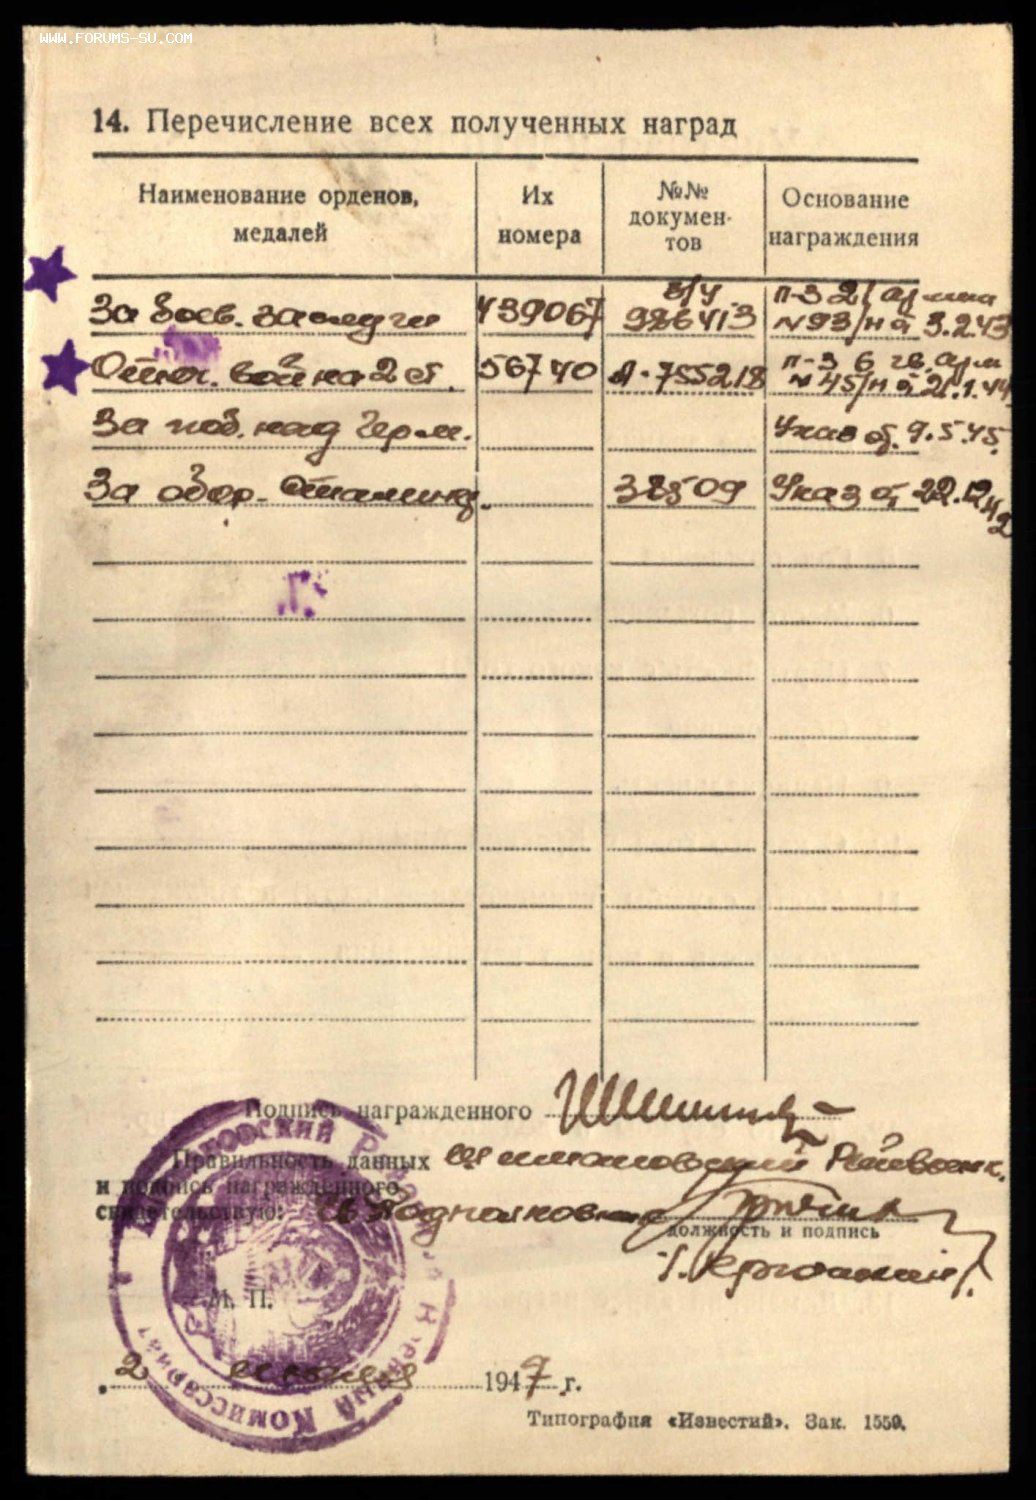 WWW.FORUMS-SU.COM
14. Перечисление всех полученных наград
Наименование орденов, медалей
Их номера
№№ докумен-тов
Основание награждения
За боев. заслуги 439067 в/у 986413 п-з 21 армии №93/н от 3.2.43
Отеч. войны 2 ст. 56740 А-755218 п-з 6 гв. арм №45/н от 21.1.44
За поб. над Герм. Указ от 9.5.45
За обор. Сталингр. 38509 Указ от 22.12.42
Подпись награжденного
Правильность данных Райвоенк.
и подпись награжденного
свидетельствую: Подполковник
должность и подпись
М. П.
2 1947 г.
Типография «Известий». Зак. 1559.